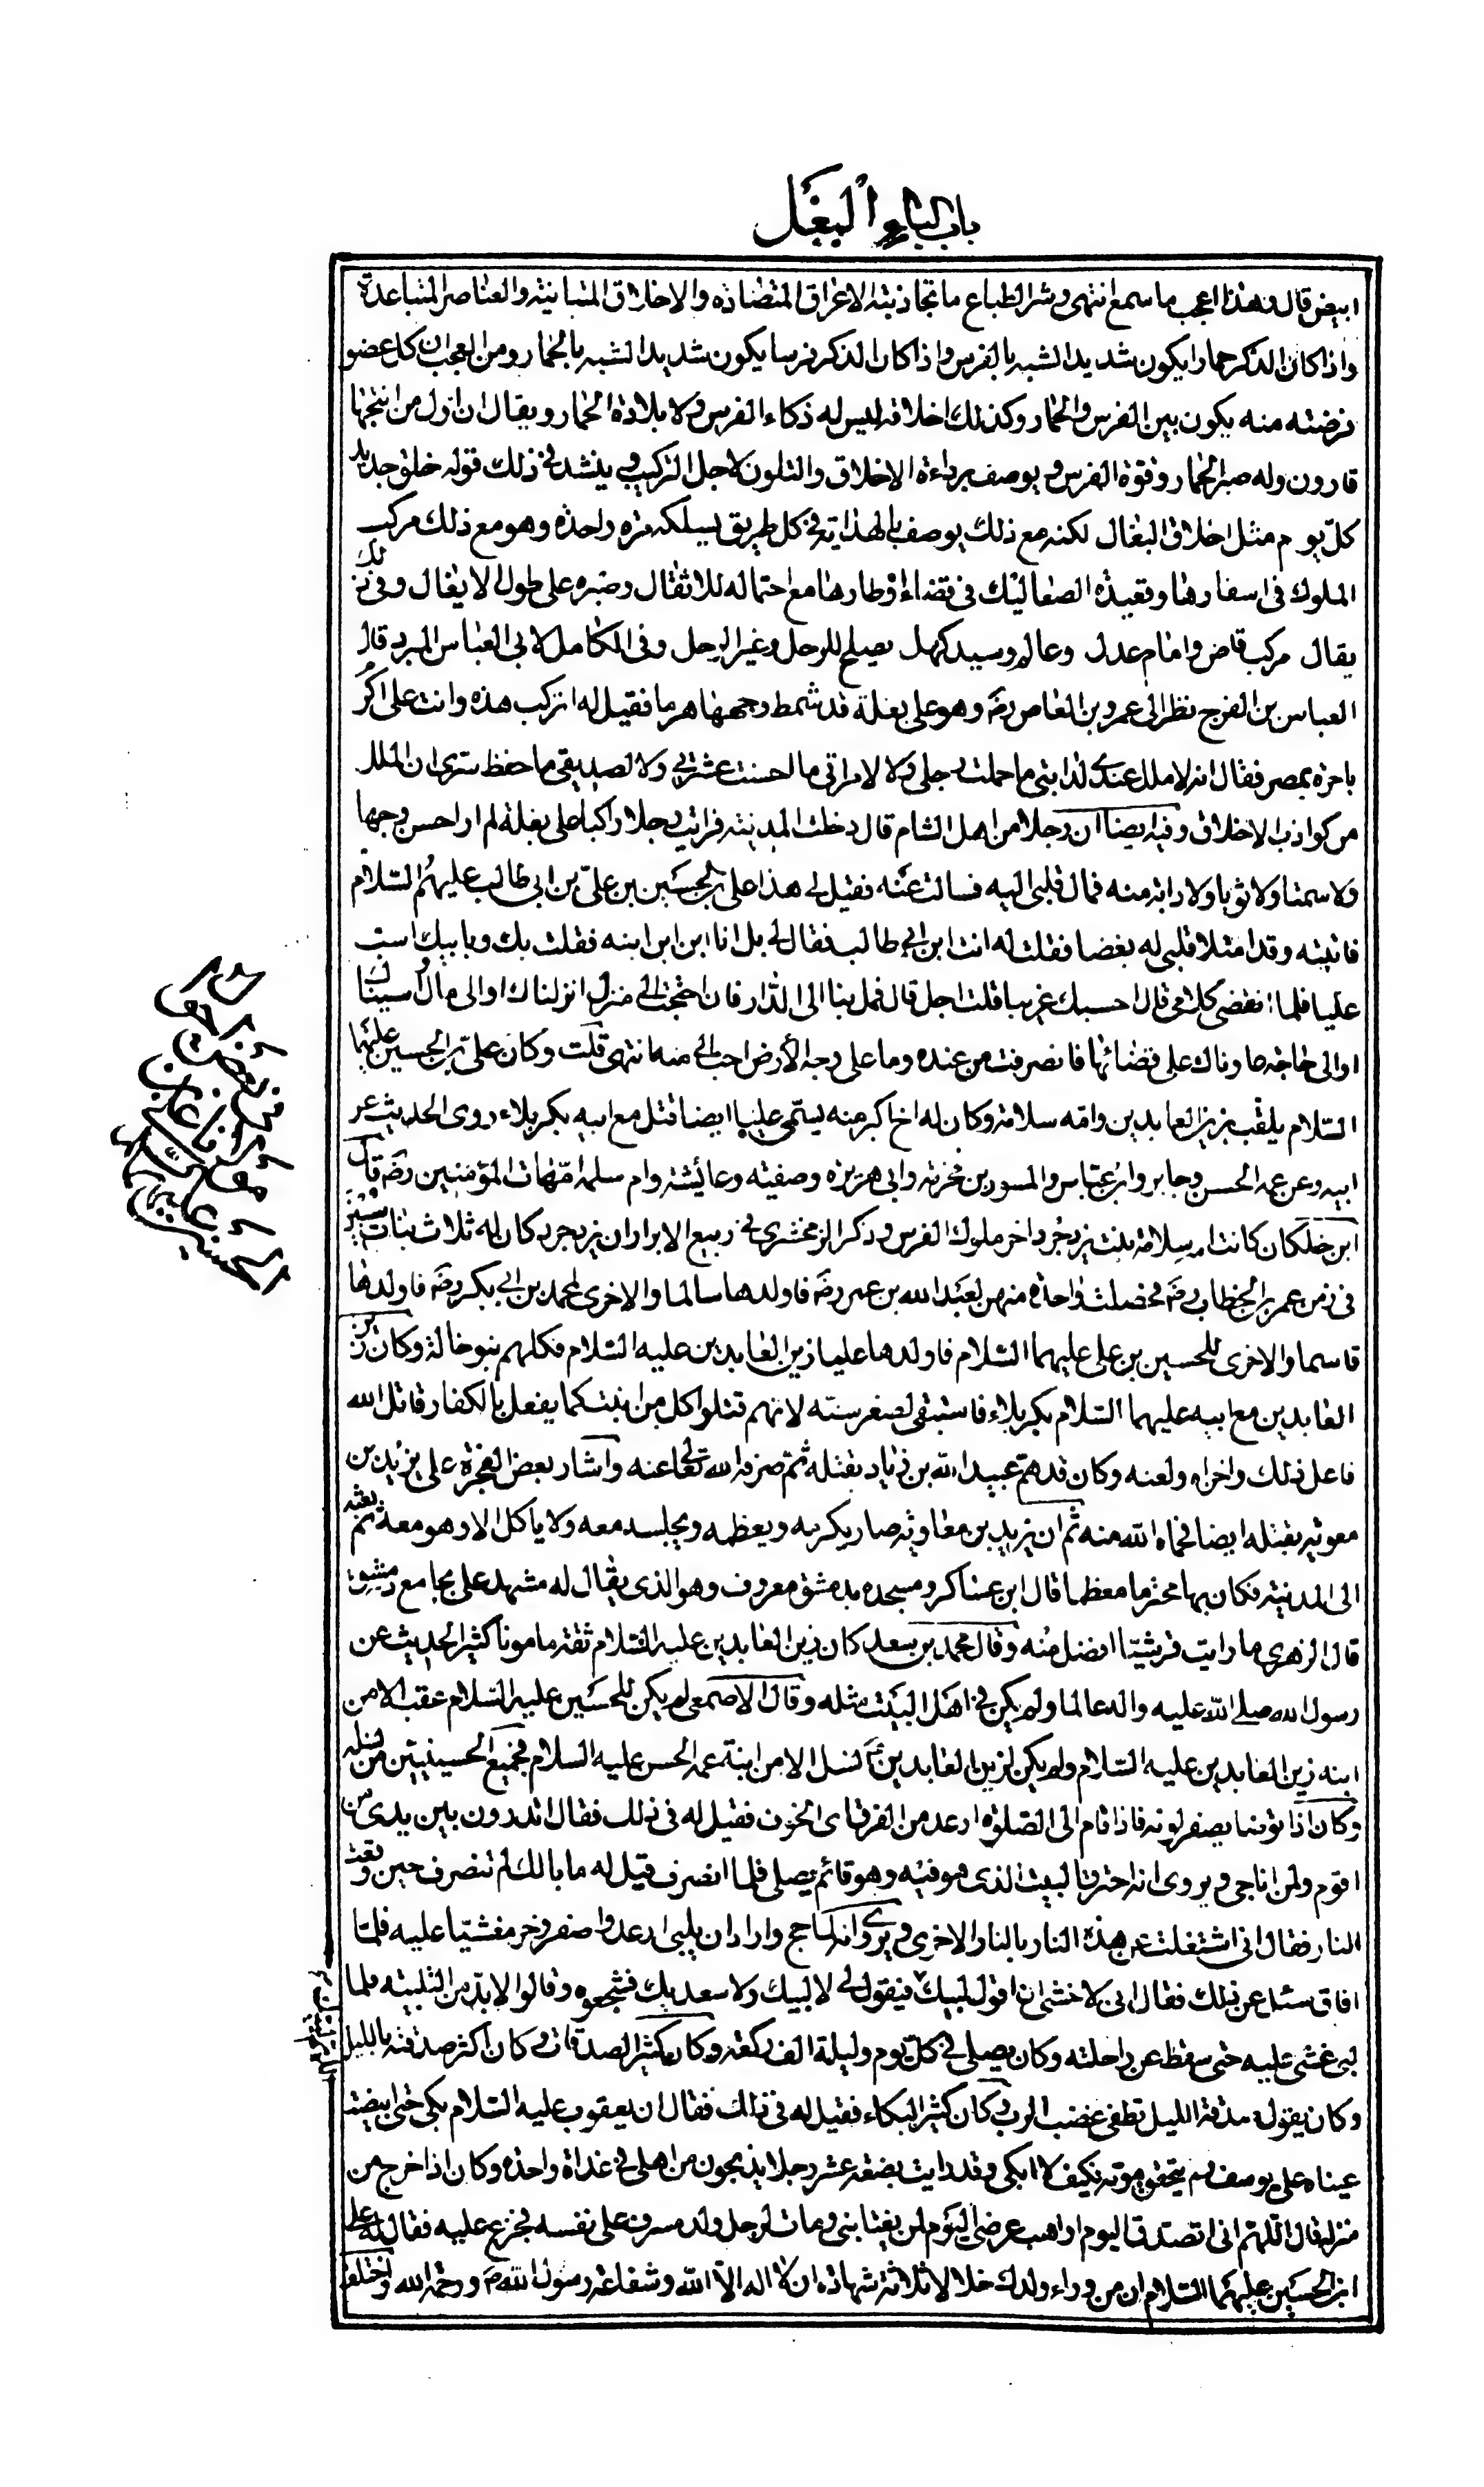 باب الباء البغل
ابيض قال وهذا اعجب ما سمع انتهى وشر الطباع ما تجاذبته الاعراق المتضادة والاخلاق المتباينة والعناصر المتباعدة
واذا كان الذكر حمارا يكون شديد الشبه بالفرس واذا كان الذكر فرسا يكون شديد الشبه بالحمار ومن العجب ان كل عضو
فرضته منه يكون بين الفرس والحمار وكذلك اخلاقه ليس له ذكاء الفرس ولا بلادة الحمار ويقال ان اول من انتجها
قارون وله صبر الحمار وقوة الفرس ويوصف برداءة الاخلاق والتلون لاجل التركيب وينشد في ذلك قوله خلق جديد
كل يوم مثل اخلاق البغال لكنه مع ذلك يوصف بالهداية في كل طريق يسلكه مرة واحدة وهو مع ذلك مركب
الملوك في اسفارها وقعيدة الصعاليك في قضاء اوطارها مع احتماله للاثقال وصبره على طول الايغال وفي ذلك
يقال مركب قاض وامام عدل وعالم وسيد كهل يصلح للرحل وغير الرحل وفي الكامل لابي العباس المبرد قال
العباس بن الفرج نظر الى عمرو بن العاص رضه وهو على بغلة قد شمط وجهها هرما فقيل له اتركب هذه وانت على اكرم
باخرة بمصر فقال انه لا ملل عندي لدابتي ما حملت رجلي ولا لامراتي ما احسنت عشرتي ولا لصديقي ما حفظ سري ان الملل
من كواذب الاخلاق وفيه ايضا ان رجلا من اهل الشام قال دخلت المدينة فرايت رجلا راكبا على بغلة لم ار احسن وجها
ولا سمتا ولا ثوبا ولا دابة منه فمال قلبي اليه فسالت عنه فقيل لي هذا علي بن الحسين بن علي بن ابي طالب عليهم السلام
فاتيته وقد امتلا قلبي له بغضا فقلت له انت ابن ابي طالب فقال لي بل انا ابن ابن ابنه فقلت بك وبابيك اسب
عليا فلما انقضى كلامي قال احسبك غريبا قلت اجل قال فمل بنا الى الدار فان احتجت الى منزل انزلناك او الى مال اسيناك
او الى حاجة عاوناك على قضائها فانصرفت من عنده وما على وجه الارض احب الي منه انتهى قلت وكان علي بن الحسين عليهما
السلام يلقب بزين العابدين وامه سلامة وكان له اخ اكبر منه يسمى عليا ايضا قتل مع ابيه بكربلاء روى الحديث عن
ابيه وعن عمه الحسن وجابر وابن عباس والمسور بن مخرمة وابي هريرة وصفية وعائشة وام سلمة امهات المؤمنين رضه قال
ابن خلكان كانت امه سلامة بنت يزدجرد اخر ملوك الفرس وذكر الزمخشري في ربيع الابرار ان يزدجرد كان له ثلاث بنات سبين
في زمن عمر بن الخطاب رضه فحصلت واحدة منهن لعبد الله بن عمر رضه فاولدها سالما والاخرى لمحمد بن ابي بكر رضه فاولدها
قاسما والاخرى للحسين بن علي عليهما السلام فاولدها عليا زين العابدين عليه السلام فكلهم بنو خالة وكان زين
العابدين مع ابيه عليهما السلام بكربلاء فاستبقى لصغر سنه لانهم قتلوا كل من انبت كما يفعل بالكفار قاتل الله
فاعل ذلك واخزاه ولعنه وكان قد هم عبيد الله بن زياد بقتله ثم صرفه الله تعالى عنه واشار بعض الفجرة على يزيد بن
معوية بقتله ايضا فحماه الله منه ثم ان يزيد بن معاوية صار يكرمه ويعظمه ويجلسه معه ولا ياكل الا وهو معه ثم بعثه
الى المدينة فكان بها محترما معظما قال ابن عساكر ومسجده بدمشق معروف وهو الذي يقال له مشهد علي بجامع دمشق
قال الزهري ما رايت قرشيا افضل منه وقال محمد بن سعد كان زين العابدين عليه السلام ثقة مامونا كثير الحديث عن
رسول الله صلى الله عليه واله عالما ولم يكن في اهل البيت مثله وقال الاصمعي لم يكن للحسين عليه السلام عقب الا من
ابنه زين العابدين عليه السلام ولم يكن لزين العابدين ع نسل الا من ابنة عمه الحسن عليه السلام فجميع الحسينيين من نسله
وكان اذا توضا يصفر لونه فاذا قام الى الصلوة ارعد من الفرق اي الخوف فقيل له في ذلك فقال اتدرون بين يدي من
اقوم ولمن اناجي ويروى انه احترق البيت الذي هو فيه وهو قائم يصلي فلما انصرف قيل له ما بالك لم تنصرف حين وقعت
النار فقال اني اشتغلت عن هذه النار بالنار الاخرى ويروى انه لما حج واراد ان يلبي ارعد واصفر وخر مغشيا عليه فلما
افاق سئل عن ذلك فقال اني لاخشى ان اقول لبيك فيقول لي لا لبيك ولا سعديك فشجعوه وقالوا لا بد من التلبية فلما
لبى غشي عليه حتى سقط عن راحلته وكان يصلي في كل يوم وليلة الف ركعة وكان كثير الصدقات وكان اكثر صدقته بالليل
وكان يقول صدقة الليل تطفي غضب الرب وكان كثير البكاء فقيل له في ذلك فقال ان يعقوب عليه السلام بكى حتى ابيضت
عيناه على يوسف ولم يتحقق موته فكيف لا ابكي وقد رايت بضعة عشر رجلا يذبحون من اهلي في غداة واحدة وكان اذا خرج من
منزله قال اللهم اني اتصدق اليوم او اهب عرضي اليوم لمن يغتابني ومات لرجل ولد مسرف على نفسه فجزع عليه فقال له علي
ابن الحسين عليهما السلام ان من وراء ولدك خلالا ثلاثة شهادة ان لا اله الا الله وشفاعة رسول الله ص ورحمة الله واختلف